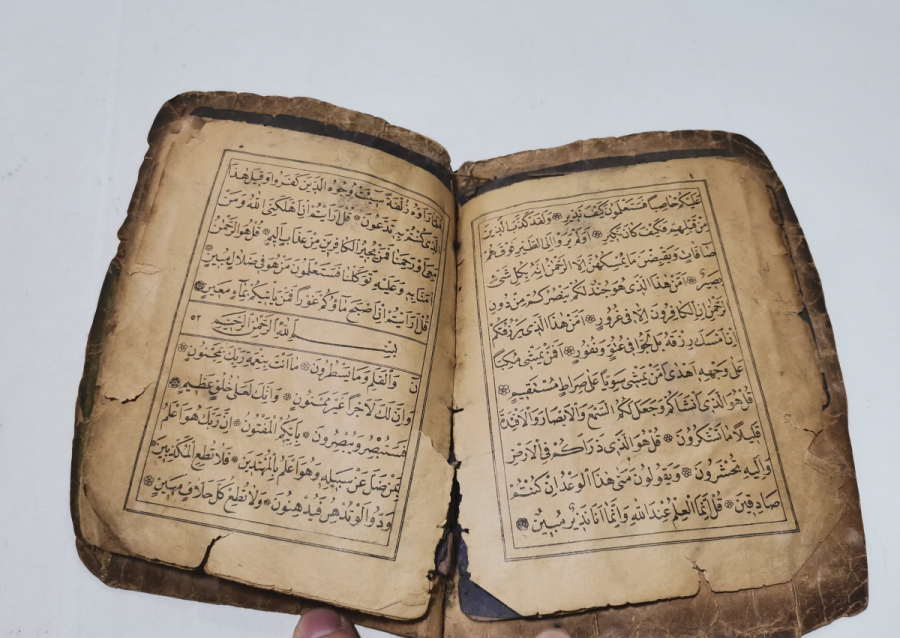 عَلَيْكُمْ حَاصِبًا فَسَتَعْلَمُونَ كَيْفَ نَذِيرِ ۝ وَلَقَدْ كَذَّبَ الَّذِينَ
مِنْ قَبْلِهِمْ فَكَيْفَ كَانَ نَكِيرِ ۝ اَوَلَمْ يَرَوْا اِلَى الطَّيْرِ فَوْقَهُمْ
صَافَّاتٍ وَيَقْبِضْنَ مَا يُمْسِكُهُنَّ اِلَّا الرَّحْمٰنُ اِنَّهُ بِكُلِّ شَيْءٍ
بَصِيرٌ ۝ اَمَّنْ هٰذَا الَّذِي هُوَ جُنْدٌ لَكُمْ يَنْصُرُكُمْ مِنْ دُونِ
الرَّحْمٰنِ اِنِ الْكَافِرُونَ اِلَّا فِي غُرُورٍ ۝ اَمَّنْ هٰذَا الَّذِي يَرْزُقُكُمْ
اِنْ اَمْسَكَ رِزْقَهُ بَلْ لَجُّوا فِي عُتُوٍّ وَنُفُورٍ ۝ اَفَمَنْ يَمْشِي مُكِبًّا
عَلٰى وَجْهِهِ اَهْدٰى اَمَّنْ يَمْشِي سَوِيًّا عَلٰى صِرَاطٍ مُسْتَقِيمٍ ۝
قُلْ هُوَ الَّذِي اَنْشَاَكُمْ وَجَعَلَ لَكُمُ السَّمْعَ وَالْاَبْصَارَ وَالْاَفْئِدَةَ
قَلِيلًا مَا تَشْكُرُونَ ۝ قُلْ هُوَ الَّذِي ذَرَاَكُمْ فِي الْاَرْضِ
وَاِلَيْهِ تُحْشَرُونَ ۝ وَيَقُولُونَ مَتٰى هٰذَا الْوَعْدُ اِنْ كُنْتُمْ
صَادِقِينَ ۝ قُلْ اِنَّمَا الْعِلْمُ عِنْدَ اللهِ وَاِنَّمَا اَنَا نَذِيرٌ مُبِينٌ ۝
فَلَمَّا رَاَوْهُ زُلْفَةً سِيئَتْ وُجُوهُ الَّذِينَ كَفَرُوا وَقِيلَ هٰذَا
الَّذِي كُنْتُمْ بِهِ تَدَّعُونَ ۝ قُلْ اَرَاَيْتُمْ اِنْ اَهْلَكَنِيَ اللهُ وَمَنْ
مَعِيَ اَوْ رَحِمَنَا فَمَنْ يُجِيرُ الْكَافِرِينَ مِنْ عَذَابٍ اَلِيمٍ ۝ قُلْ هُوَ الرَّحْمٰنُ
اٰمَنَّا بِهِ وَعَلَيْهِ تَوَكَّلْنَا فَسَتَعْلَمُونَ مَنْ هُوَ فِي ضَلَالٍ مُبِينٍ ۝
قُلْ اَرَاَيْتُمْ اِنْ اَصْبَحَ مَاؤُكُمْ غَوْرًا فَمَنْ يَاْتِيكُمْ بِمَاءٍ مَعِينٍ ۝
بِسْمِ اللهِ الرَّحْمٰنِ الرَّحِيمِ ٥٢
نٓ وَالْقَلَمِ وَمَا يَسْطُرُونَ ۝ مَا اَنْتَ بِنِعْمَةِ رَبِّكَ بِمَجْنُونٍ ۝
وَاِنَّ لَكَ لَاَجْرًا غَيْرَ مَمْنُونٍ ۝ وَاِنَّكَ لَعَلٰى خُلُقٍ عَظِيمٍ ۝
فَسَتُبْصِرُ وَيُبْصِرُونَ ۝ بِاَيِّكُمُ الْمَفْتُونُ ۝ اِنَّ رَبَّكَ هُوَ اَعْلَمُ
بِمَنْ ضَلَّ عَنْ سَبِيلِهِ وَهُوَ اَعْلَمُ بِالْمُهْتَدِينَ ۝ فَلَا تُطِعِ الْمُكَذِّبِينَ ۝
وَدُّوا لَوْ تُدْهِنُ فَيُدْهِنُونَ ۝ وَلَا تُطِعْ كُلَّ حَلَّافٍ مَهِينٍ ۝